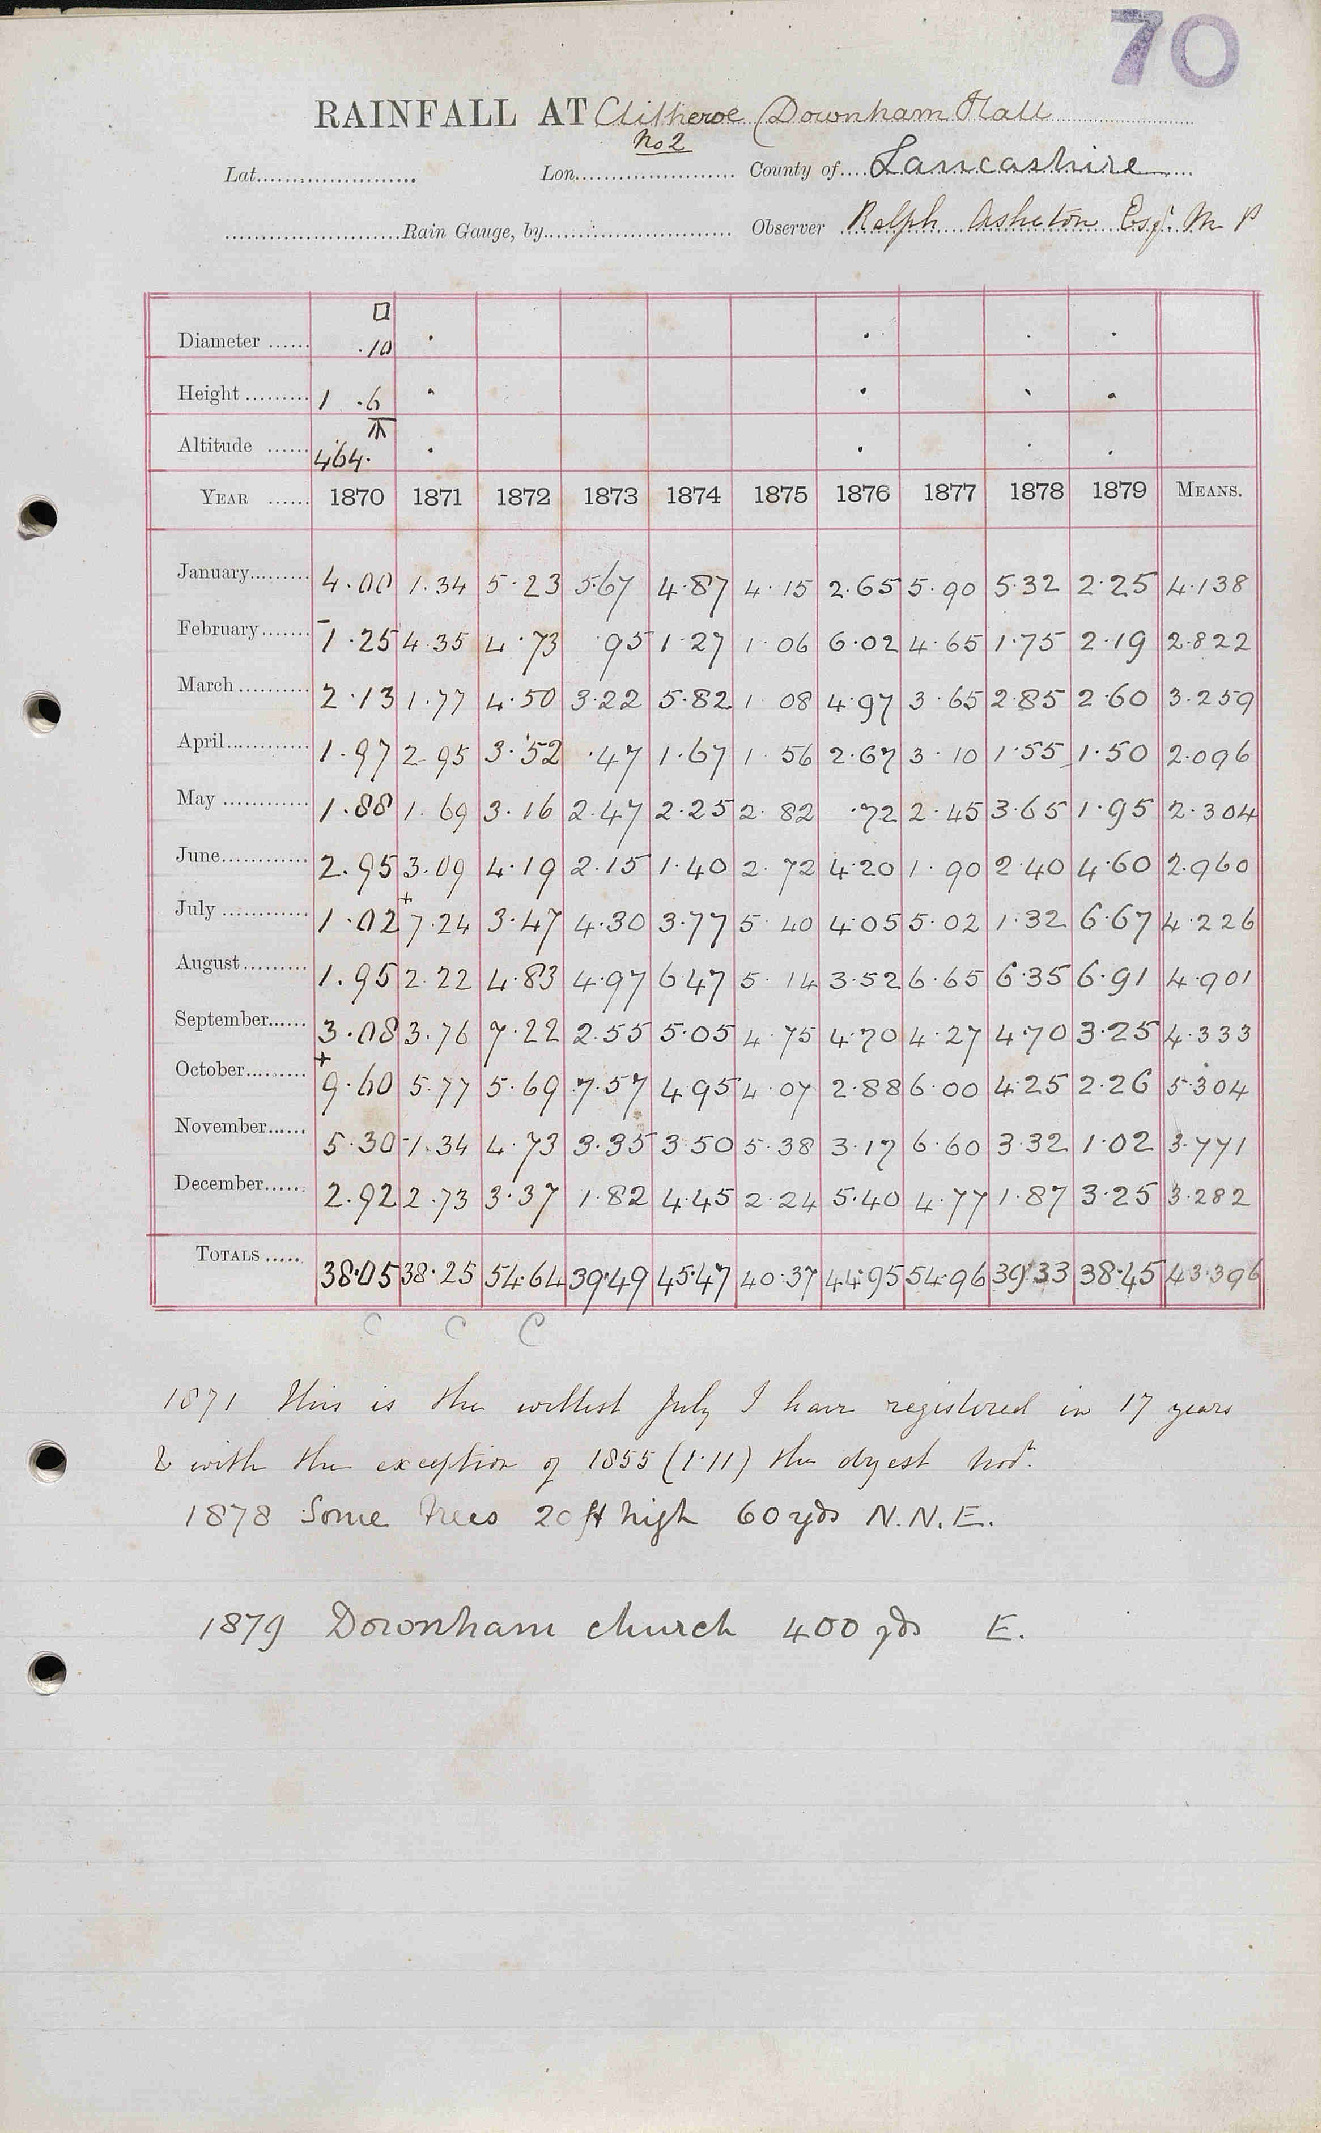 70
RAINFALL AT Clitheroe (Downham Hall
No 2
Lat. Lon. County of Lancashire
Rain Gauge, by Observer Ralph Assheton Esqr. M P
□
Diameter .10
Height 1 .6
Altitude 464.
YEAR 1870 1871 1872 1873 1874 1875 1876 1877 1878 1879 MEANS.
January 4.00 1.34 5.23 5.67 4.87 4.15 2.65 5.90 5.32 2.25 4.138
February 1.25 4.35 4.73 .95 1.27 1.06 6.02 4.65 1.75 2.19 2.822
March 2.13 1.77 4.50 3.22 5.82 1.08 4.97 3.65 2.85 2.60 3.259
April 1.97 2.95 3.52 .47 1.67 1.56 2.67 3.10 1.55 1.50 2.096
May 1.88 1.69 3.16 2.47 2.25 2.82 .72 2.45 3.65 1.95 2.304
June 2.95 3.09 4.19 2.15 1.40 2.72 4.20 1.90 2.40 4.60 2.960
July 1.02 +7.24 3.47 4.30 3.77 5.40 4.05 5.02 1.32 6.67 4.226
August 1.95 2.22 4.83 4.97 6.47 5.14 3.52 6.65 6.35 6.91 4.901
September 3.08 3.76 7.22 2.55 5.05 4.75 4.70 4.27 4.70 3.25 4.333
October +9.60 5.77 5.69 7.57 4.95 4.07 2.88 6.00 4.25 2.26 5.304
November 5.30 -1.34 4.73 3.35 3.50 5.38 3.17 6.60 3.32 1.02 3.771
December 2.92 2.73 3.37 1.82 4.45 2.24 5.40 4.77 1.87 3.25 3.282
TOTALS 38.05 38.25 54.64 39.49 45.47 40.37 44.95 54.96 39.33 38.45 43.396
C C C
1871 This is the wettest July I have registered in 17 years
& with the exception of 1855 (1.11) the dryest Novr.
1878 Some Trees 20 ft high 60 yds N.N.E.
1879 Downham church 400 yds E.